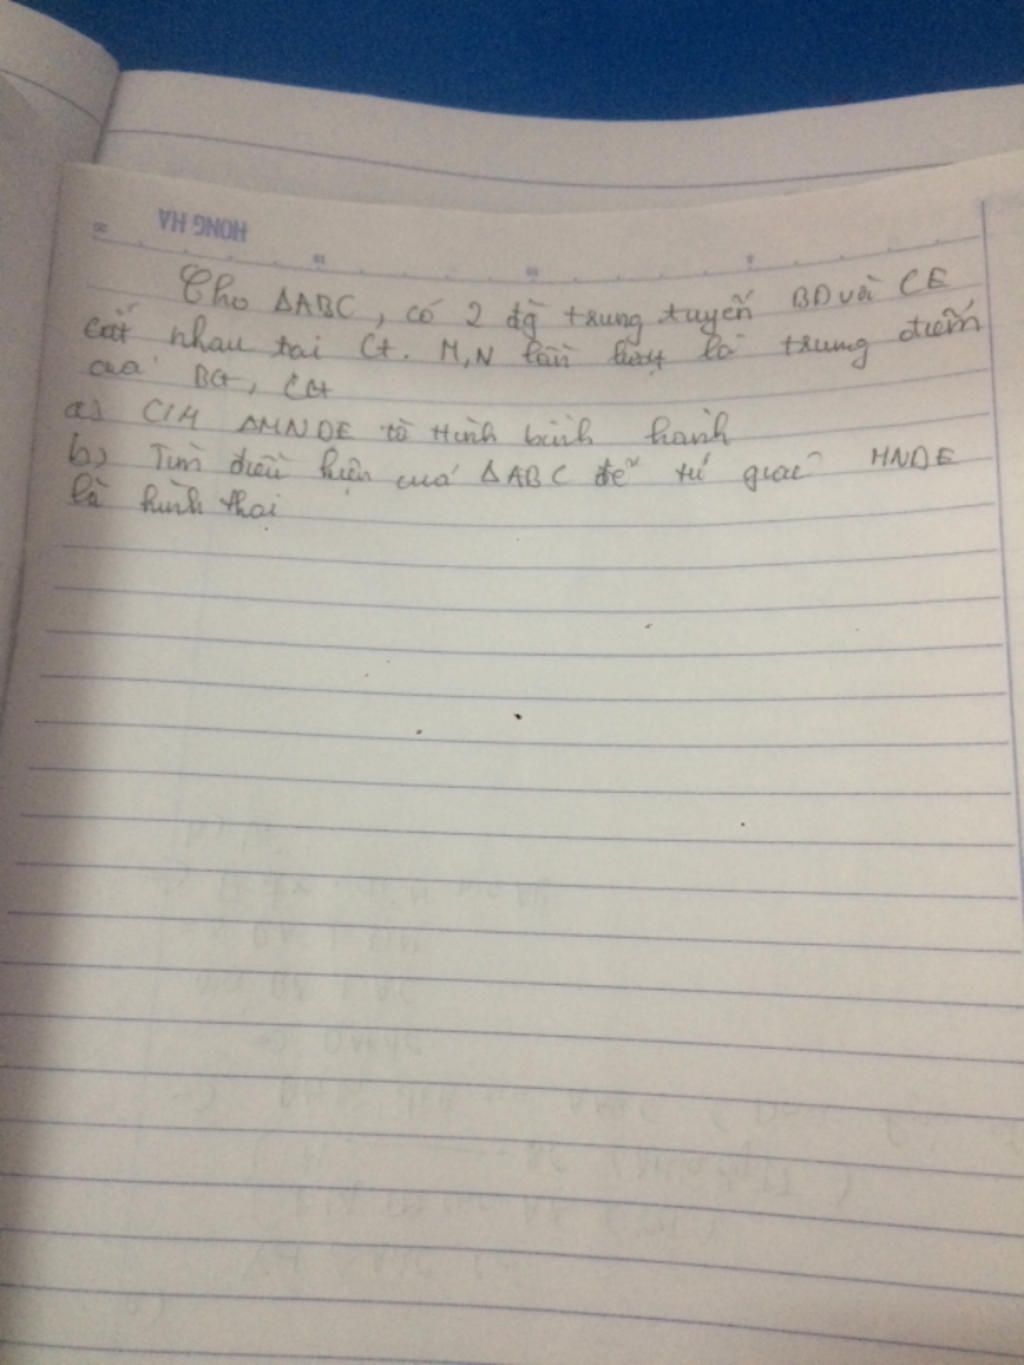 HONG HA
Cho ΔABC, có 2 đg trung tuyến BD và CE
cắt nhau tại G. M,N lần lượt là trung điểm
của BG, CG
a) C/M ΔMNDE là Hình bình hành
b) Tìm điều kiện cuả ΔABC để tứ giác MNDE
là hình thoi